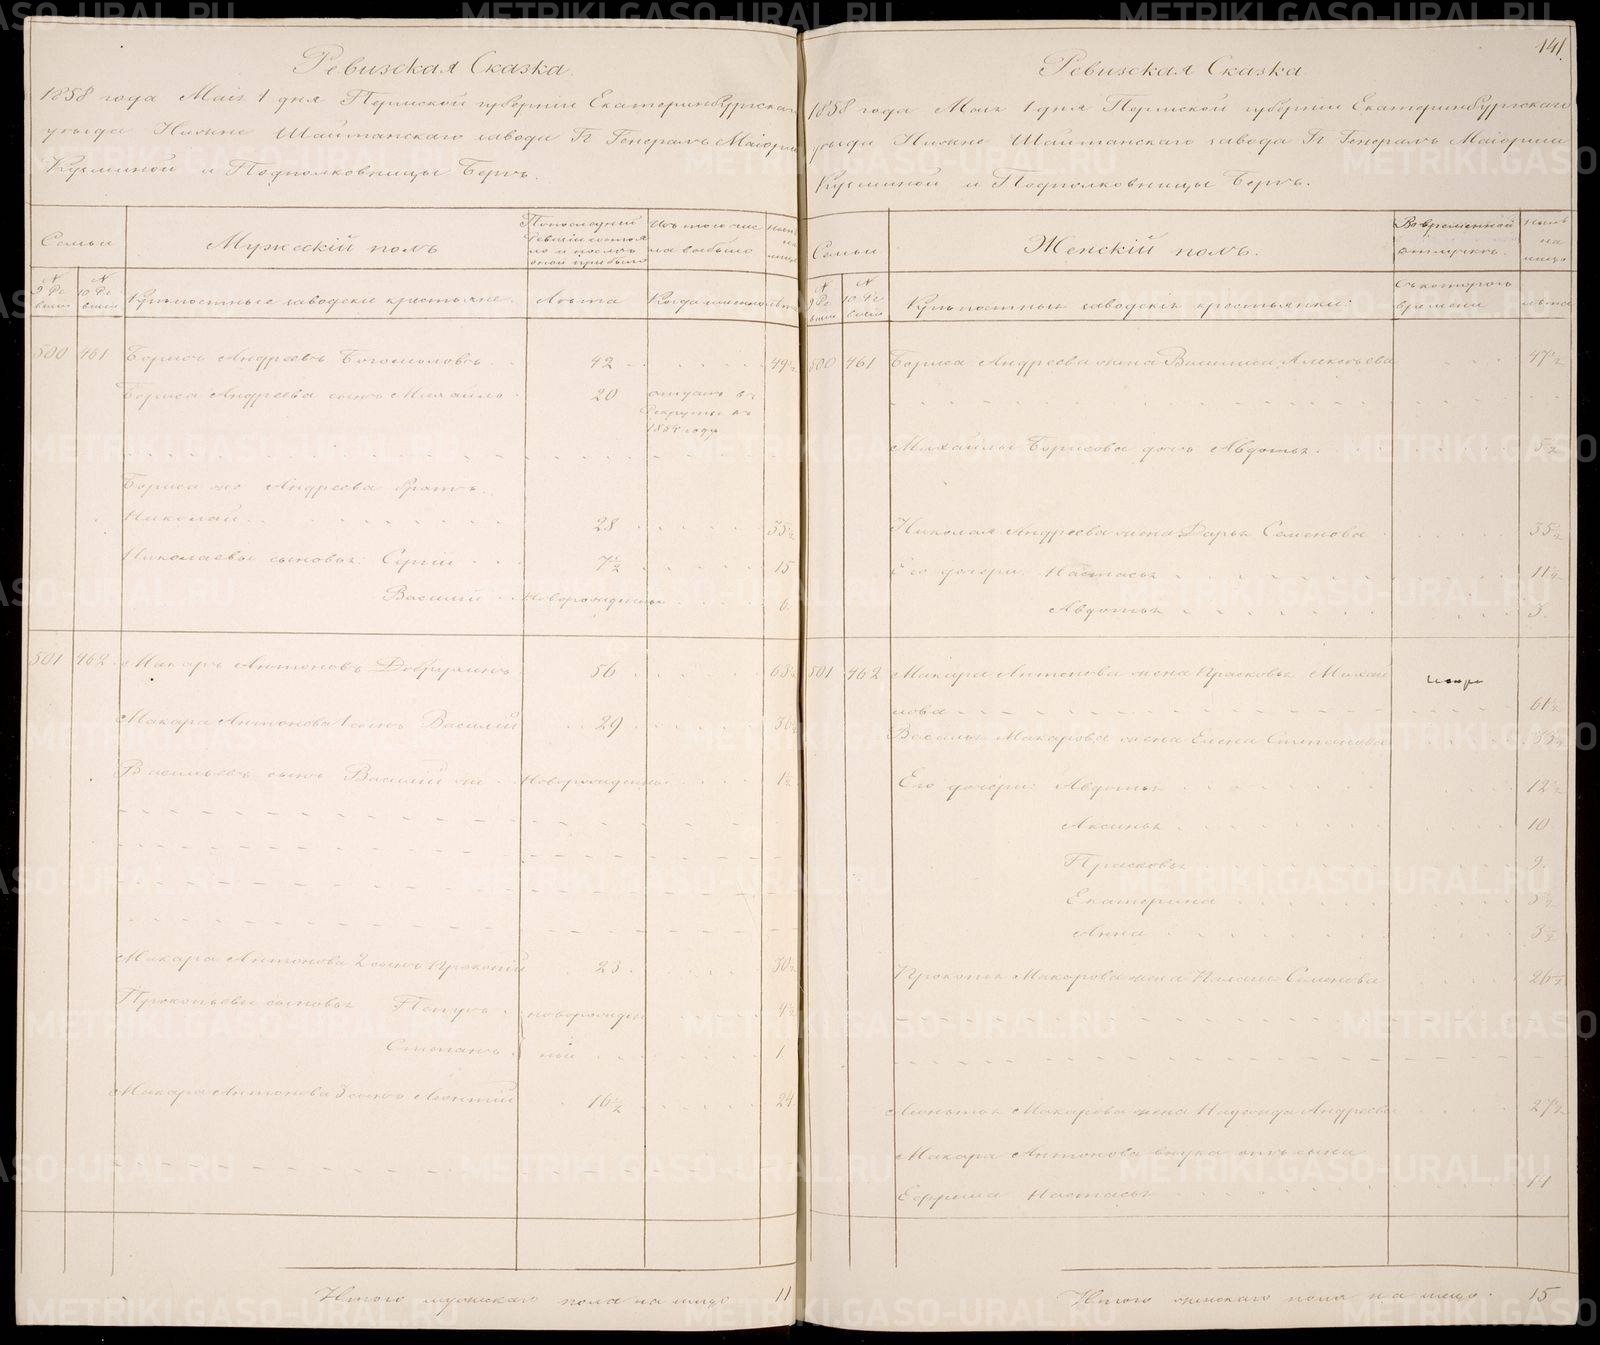 Ревизская Сказка
1858 года Маія 1 дня Пермской губерніи Екатеринбургскаго
уѣзда Нижне Шайтанскаго завода Гг. Генералъ Маіорши
Кузминой и Подполковницы Бергъ.
Семьи
Мужескій полъ
По последней ревизіи состояло и послѣ оной прибыло
Изъ того числа выбыло
Нынѣ на лицо
№ 9 Ревизіи
№ 10 Ревизіи
Крѣпостные заводскіе крестьяне.
Лѣта
Когда именно
лѣта
500 461 Борисъ Андреевъ Богомоловъ 42 49½
Бориса Андреева сынъ Михайло 20 отданъ въ
рекруты въ
1854 году
Бориса же Андреева братъ
Николай 28 35½
Николаевы сыновья: Сергій 7½ 15
Василій Новорожденны 6
501 462 Макаръ Антоновъ 56 63½
Макара Антонова 1 сынъ Василій 29 36½
Васильевъ сынъ Василій же Новорожденны 1½
Макара Антонова 2 сынъ Прокопій 23 30½
Прокопьевы сыновья Петръ новорожден 4½
Степанъ ные 1
Макара Антонова 3 сынъ Леонтій 16½ 24
Итого мужскаго пола на лицо 11
141
Ревизская Сказка
1858 года Маія 1 дня Пермской губерніи Екатеринбургскаго
уѣзда Нижне Шайтанскаго завода Гг. Генералъ Маіорши
Кузминой и Подполковницы Бергъ.
Семьи
Женскій полъ.
Во временной отлучкѣ.
Нынѣ на лицо
№ 9 Ревизіи
№ 10 Ревизіи
Крѣпостныя заводскія крестьянки:
Съ котораго времени
лѣта
500 461 Бориса Андреева жена Василиса Алексѣева 47½
Михайлы Борисова дочь Авдотья 5½
Николая Андреева жена Дарья Семенова 35½
Его дочери: Настасья 11½
Авдотья 3
501 462 Макара Антонова жена Прасковья Михай
лова 61½
Василья Макарова жена Елена Степанова 35½
Его дочери: Авдотья 12½
Аксинья 10
Прасковья 9
Екатерина 5½
Анна 3½
Прокопья Макарова жена Семенова 26½
Леонтья Макарова жена Надежда Андреева 27½
Макара Антонова внука отъ сына
Ефрима Настасья 14
Итого женскаго пола на лицо 15
METRIKI.GASO-URAL.RU